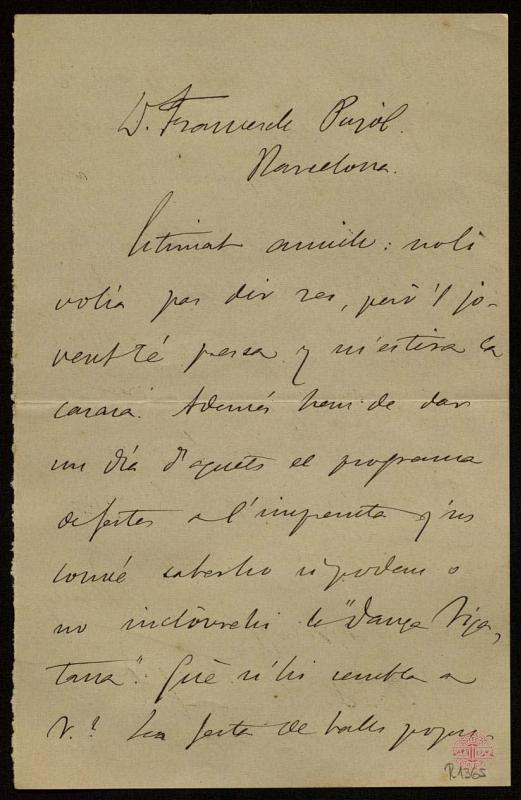 D. Francesch Pujól.
Barcelona.
Estimat amich: no li
volía pas dir res, però'l jo-
vent té pressa y m'estira la
casaca. Además hem de dar
un día d'aquets el programa
de festes a l'imprenta y'ns
convé saberho si podem o
no inclóurehi la "Dança Viga-
tana". Què n'hi sembla a
V.? La festa de balls popu-
R.1365